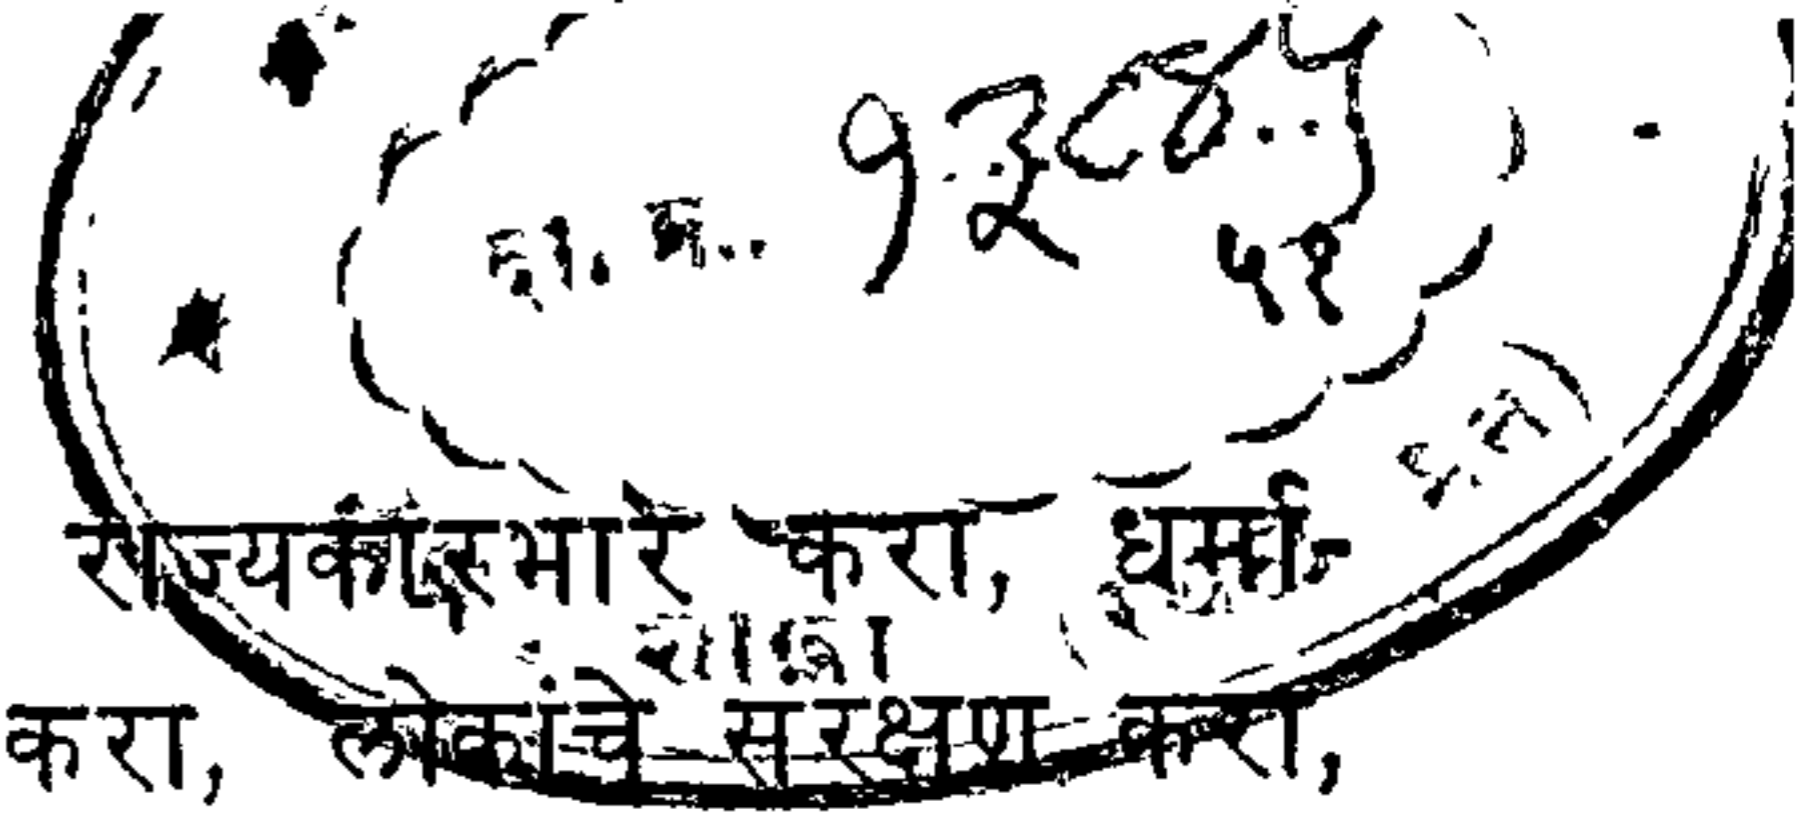 दा. क्र.. १३८४५
५१
राज्यकारभार करा, धर्मा-
करा, लोकांचे संरक्षण करा,